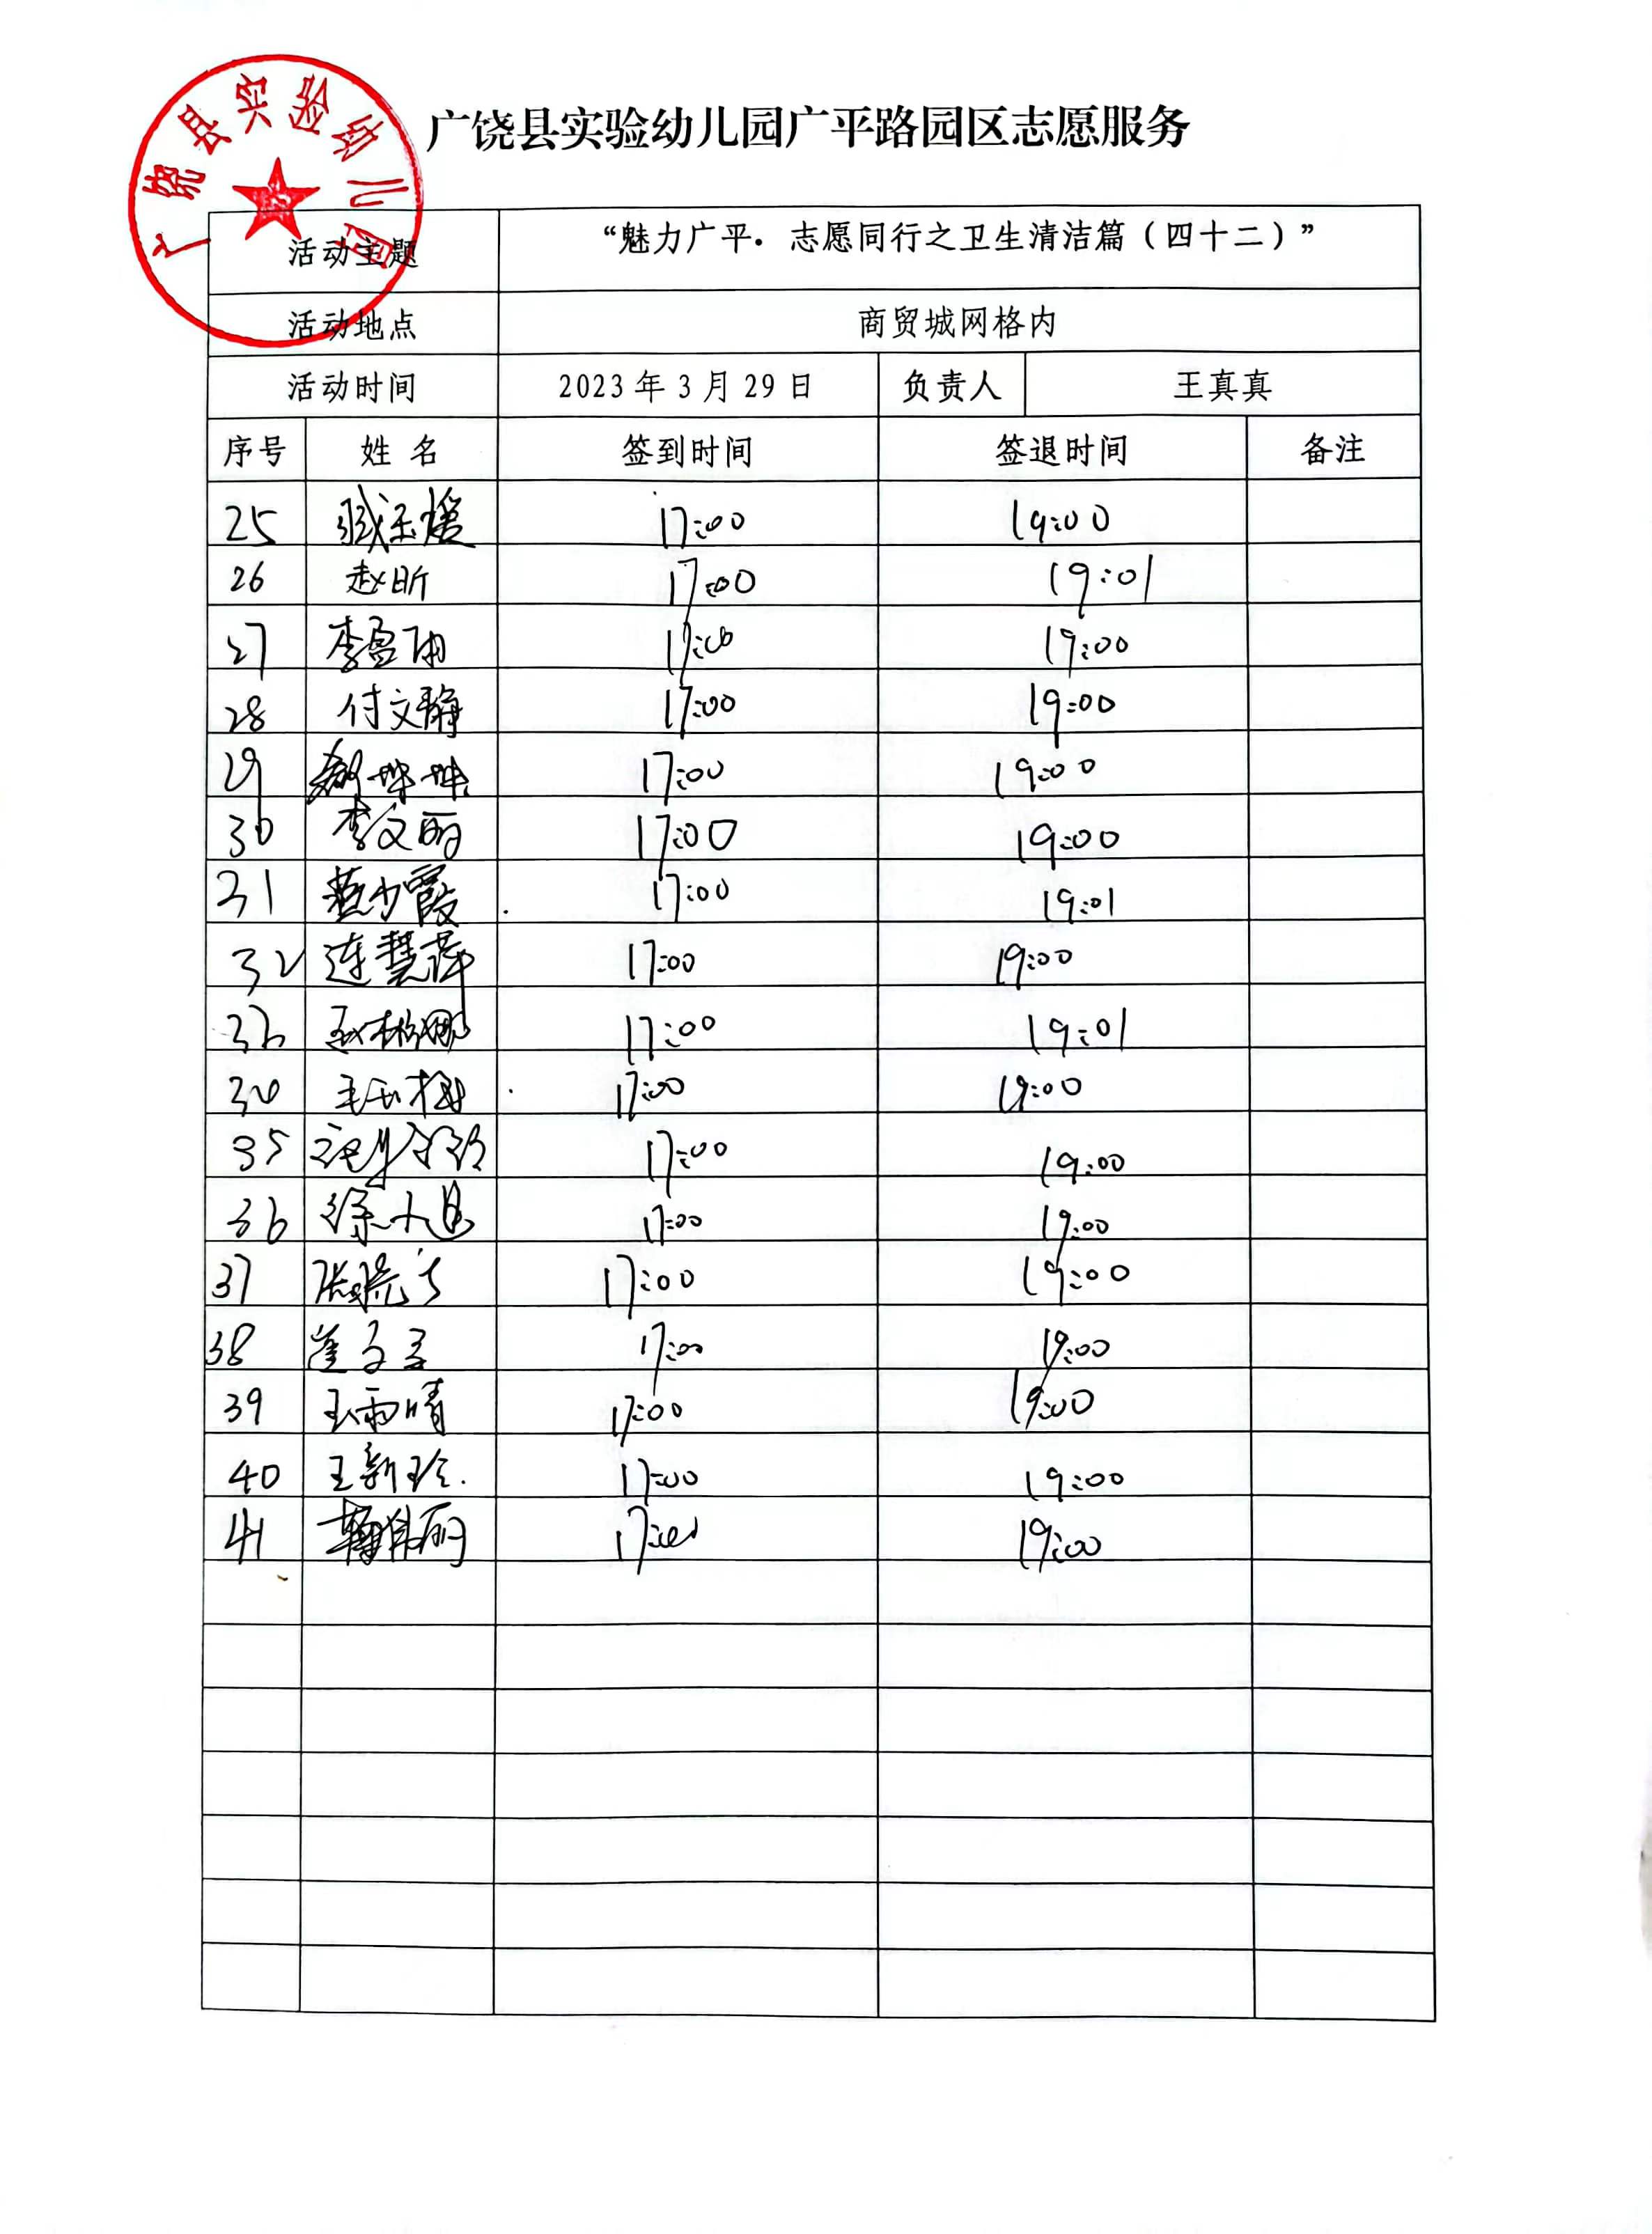 广饶县实验幼儿园
广饶县实验幼儿园广平路园区志愿服务
活动主题 “魅力广平．志愿同行之卫生清洁篇（四十二）”
活动地点 商贸城网格内
活动时间 2023年3月29日 负责人 王真真
序号 姓名 签到时间 签退时间 备注
25 17:00 19:00
26 赵昕 17:00 19:01
27 李盈雨 17:00 19:00
28 付文静 17:00 19:00
29 17:00 19:00
30 李文丽 17:00 19:00
31 燕少霞 17:00 19:01
32 连慧萍 17:00 19:00
33 17:00 19:01
34 17:00 19:00
35 17:00 19:00
36 17:00 19:00
37 17:00 19:00
38 17:00 19:00
39 王雨晴 17:00 19:00
40 王新玲 17:00 19:00
41 17:00 19:00